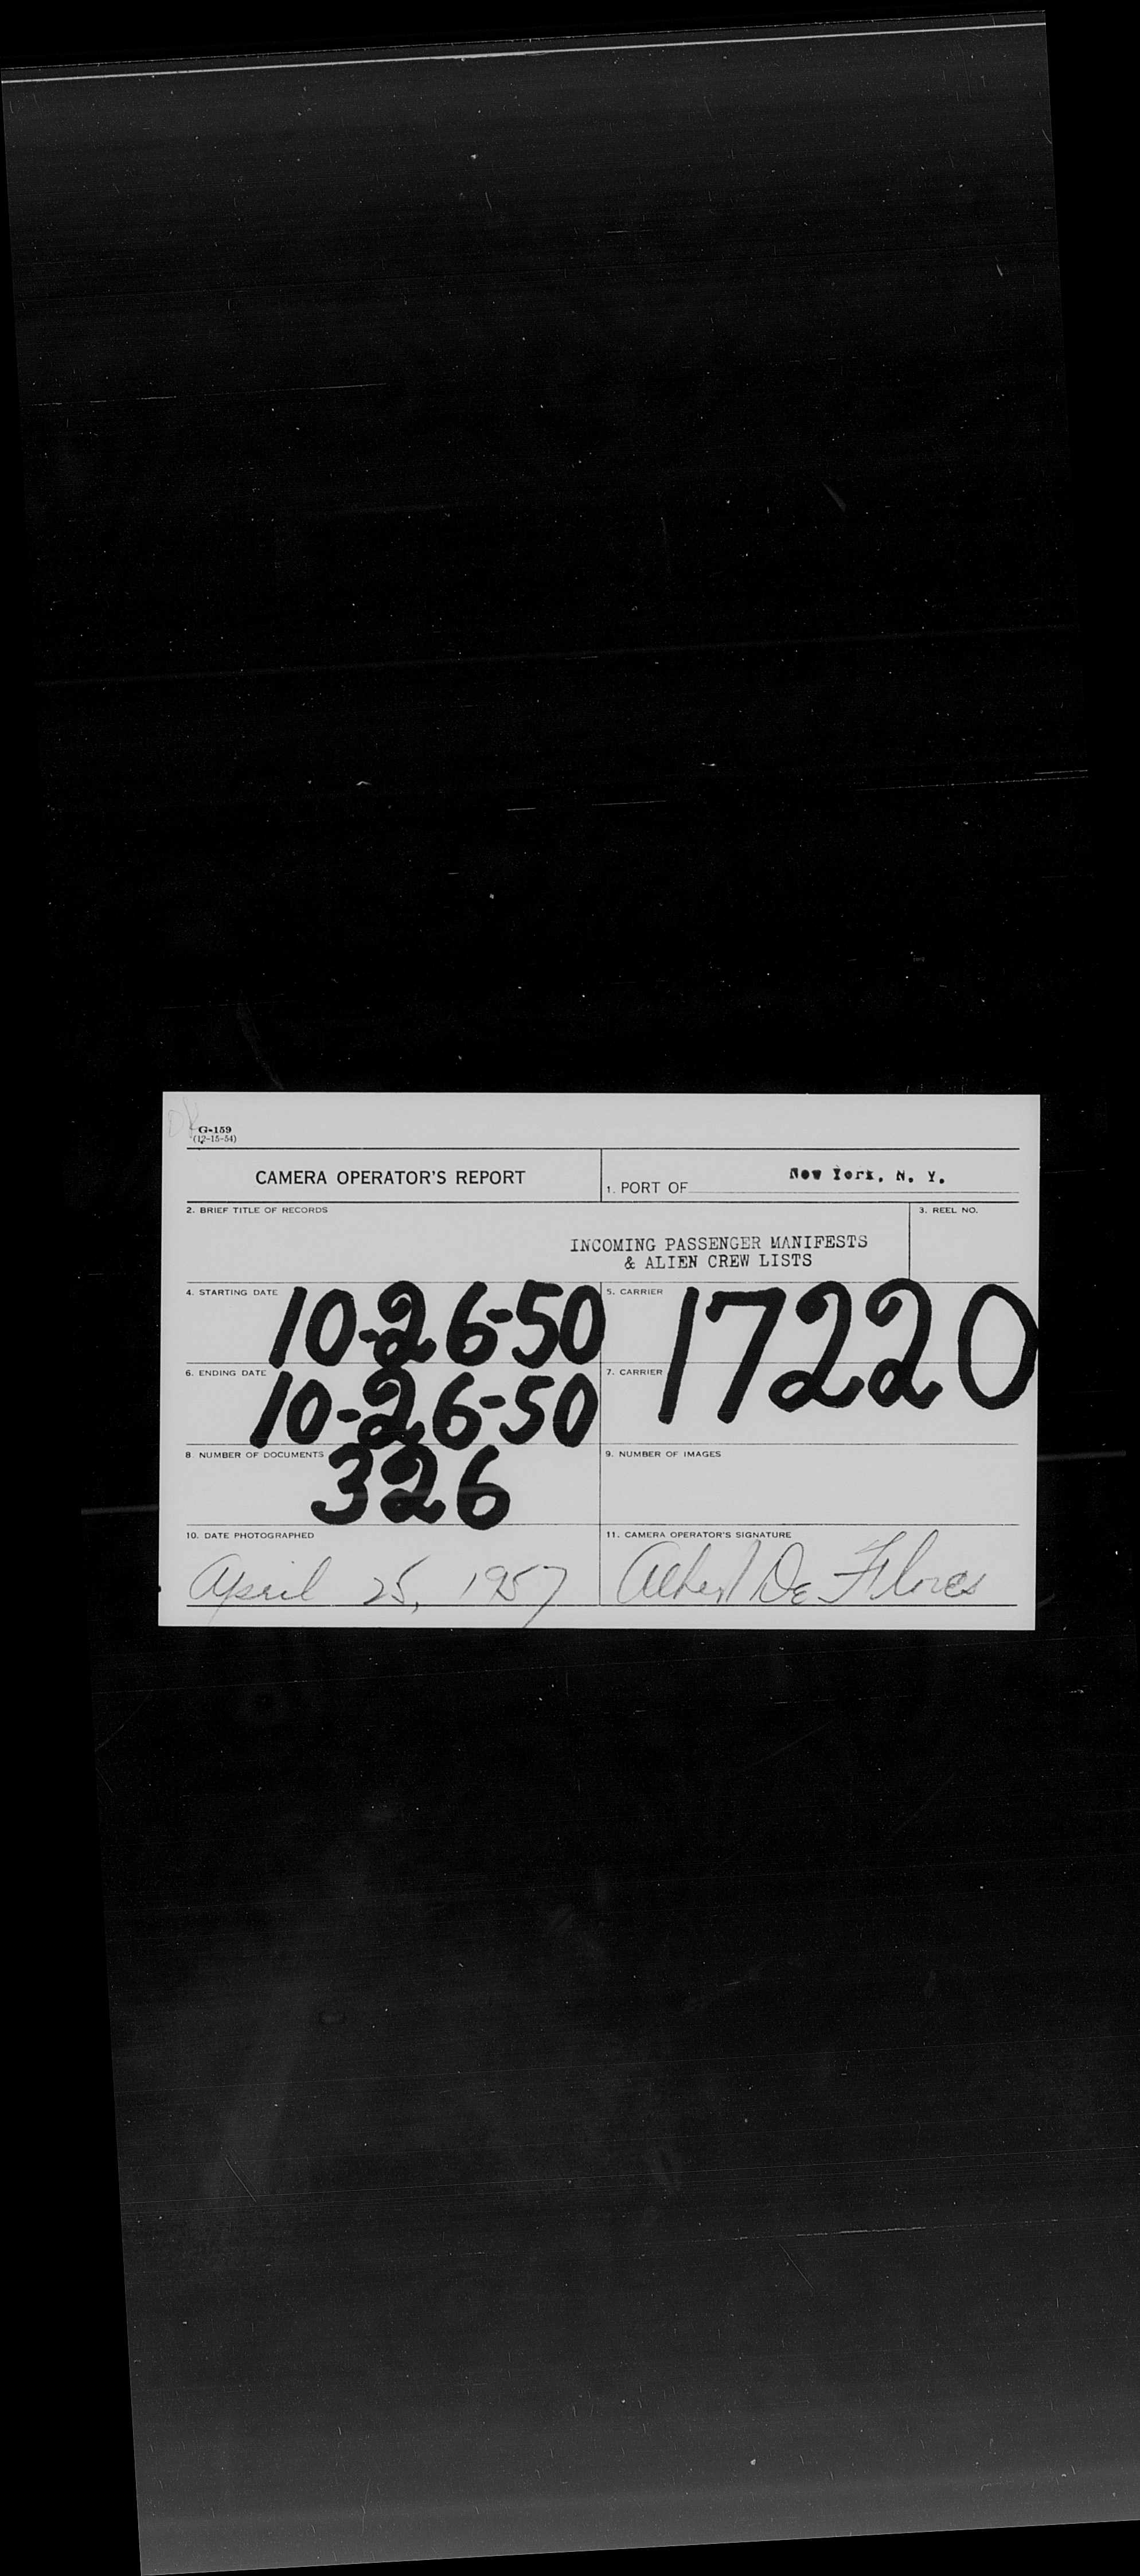 G-159
(12-15-54)
CAMERA OPERATOR'S REPORT
1. PORT OF New York, N. Y.
2. BRIEF TITLE OF RECORDS
3. REEL NO.
INCOMING PASSENGER MANIFESTS
& ALIEN CREW LISTS
4. STARTING DATE 10-26-50
5. CARRIER
17220
6. ENDING DATE 10-26-50
7. CARRIER
8. NUMBER OF DOCUMENTS 326
9. NUMBER OF IMAGES
10. DATE PHOTOGRAPHED
April 25, 1957
11. CAMERA OPERATOR'S SIGNATURE
Albert De Flores